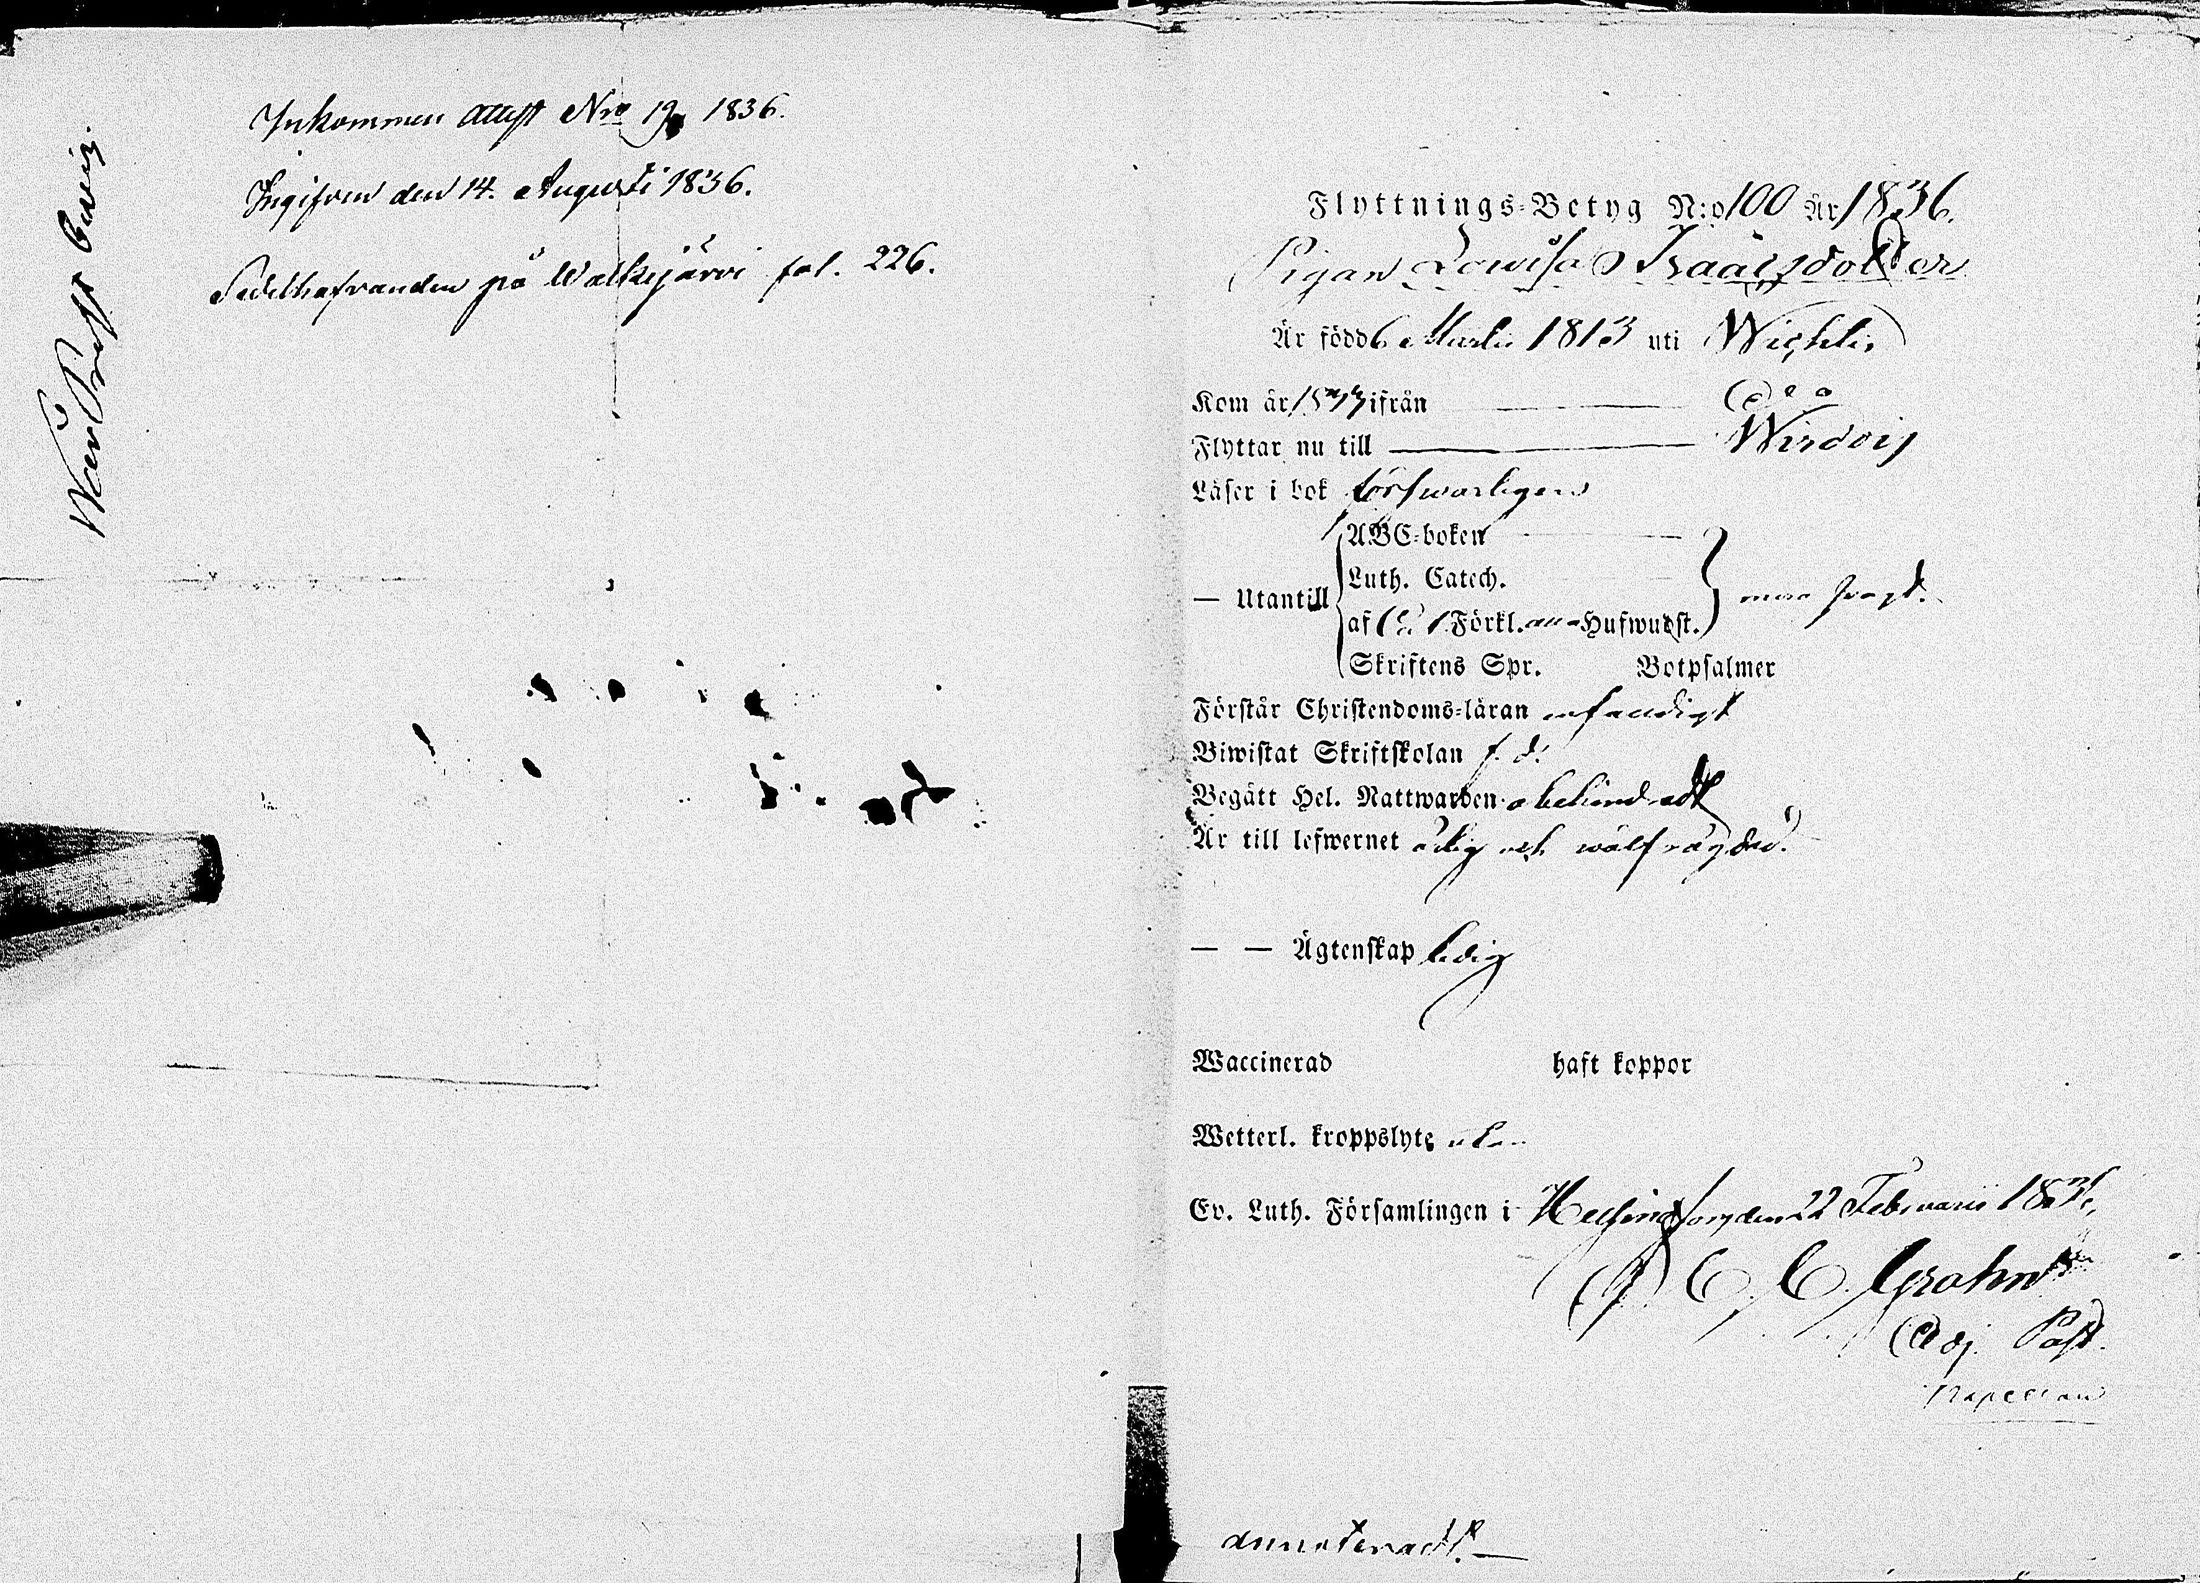 Inkommen attest Nro 19 1836.
Ingifven den 14. Augusti 1836.
Sedelhafvanden på Walkejärvi fol. 226.
Flyttnings-Betyg N:o 100 År 1836.
Pigan Lowisa Isaacsdotter
Är född 6 Martii 1813 uti Wichtis
Kom år 1833 ifrån do
Flyttar nu till Wirdois
Läser i bok försvarligen
ABC-boken
Luth. Catech.
— Utantill
af Förkl. Hufwudst.
Skriftens Spr. Botpsalmer
Förstår Christendoms-läran enfaldigt
Biwistat Skriftskolan
Begått Hel. Nattwarden obehindradt
Är till lefwernet ärlig och wälfrägdad.
— — Ägtenskap ledig
Waccinerad haft koppor
Wetterl. kroppslyte utan
Ev. Luth. Församlingen i Helsingfors den 22 Februarii 1836,
C. C. Grohn
Adj. Past.
annoteradt.